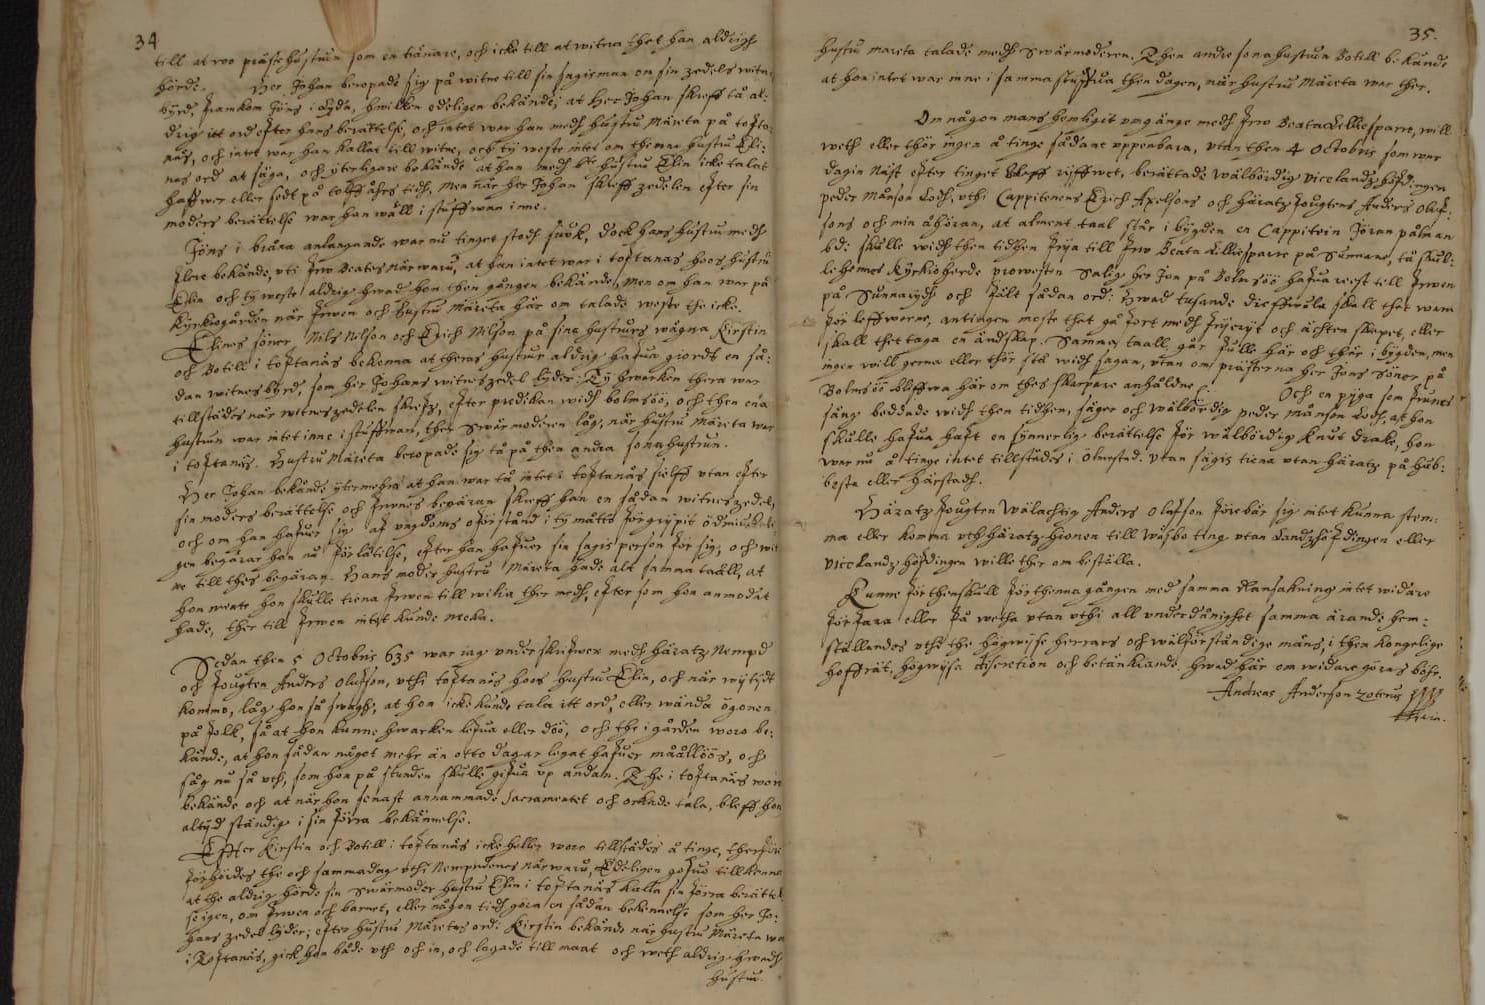 34
till at roo prästehustrun som en tiänare, och icke till at witna thet han aldrigh
hörde. Her Johan beropade sig på witne till sin sagesman on sin zedels witne
byrd, framkom Jöns i Ryda, hwilken edeligen bekände, at Her Johan skreff tå al:
drig itt ord efter hans berättelse, och intet war han medh hustru Märeta på tofta:
näs, och intet war han kallat till witne, och ty weste intet om thenna hustru Eli:
nas ord at säya, och yterligare bekände at han medh hustru Elin icke talat
haffwer eller sedt på tolff åhrs tidh, men när her Johan skreff zedelen efter sin
moders berättelse war han wäll i stuffwan inne.
Jöns i biära anlangande war nu tinget stodh siuk, doch hans hustru medh
flere bekände, uti frw Beates närwaru, at han intet war i toftanäs hoos hustru
Elin och ty weste aldrig hwad hon then gången bekände, men om han war på
Kyrkiogården när frwen och hustru Märeta här om talade weste the icke.
Elines söner, Nils Nilson och Erich Nilson på sine hustrurs wägna Kirstin
och Botill i toftanäs bekenna at theras hustrur aldrig hafua giordt en så:
dan witnesbyrd, som her Johans witneszedel lyder. Ty hwarken thera war
tillstädes när witneszedelen skrefz, efter predikan widh bolmsöö, och then ena
hustrun war intet inne i stuffwan, ther Swärmoderen låg, när hustru Märeta war
i toftanäs. Hustru Märeta beropade sig tå på then andra sonahustrun.
Her Johan bekände ytermehra at han war tå intet i toftanäs sielff utan efter
sin moders berättelse och frwnes begäran skreff han en sådan witneszedel,
och om han hafuer sig af ungdoms oförstånd i ty måtto förgripit ödmiukeli:
gen begärar han nu förlåtelse, efter han hafuer sin sagis person för sig, och wit
ne till thes begäran. Hans moder hustru Märeta hade alt samma taall, at
hon mente hon skulle tiena frwen till wilia ther medh, efter som hon anmodat
hade, ther till frwen intet kunde neka.
Sedan then 5 Octobris 635 war iag underskrifwen medh häratz Nempd
och fougten Anders Olufson, uthi toftanäs hoos hustru Elin, och när wij tijt
kommo, låg hon så swagh, at hon icke kunde tala itt ord, eller wända ögonen
på folk, så at hon kunne hwarken lefua eller döö, och the i gården woro be:
kände, at hon sådan något mehr än otto dagar legat hafuer måållöös, och
såg nu så uth, som hon på stunden skulle gifua up andan. The i toftanäs wore
bekände och at när hon senast annammade Sacramentet och orkade tala, bleff hon
altijd ständig i sin förra bekännelse.
Efter Kirstin och Botill i toftanäs icke heller woro tillstädes å tinge, therföre
förhördes the och sammadag uthi Nempdenes närwaru, Edeligen gofuo tillkenna
at the aldrig hörde sin Swärmoder hustru Elin i toftanäs kalla sin förra berättel
se igen, om frwen och barnet, eller någon tidh göra en sådan bekennelse som her Jo:
hans zedel lyder; efter hustru Märetas ord. Kirstin bekände när hustru Märeta wa
i Toftanäs, gick hon både uth och in, och lagade till maat och weth aldrig hwadh
hustru.
35.
hustru mareta talade medh Swärmoderen. Then andre sonahustrun Botill bekände
at hon intet war inne i samma stuffua then dagen, när hustru Märeta war ther.
Om någon mans hemligit umgänge medh frw Beata Lilliesparre, will
weth eller thör ingen å tinge sådane uppenbara, utan then 4 Octobris som war
dagin näst efter tinget bleff uffwet, berättade wälbördig vicelandzhöfdingen
peder Månson Lodh, uthi Cappitenens Erich Axelsons och häratzfougtens Anders Oluf:
sons och min åhöran, at alment taal står i bygden en Cappitein Jöran pålman
be: skulle widh then tidhen frija till frw Beata Lilliesparre på Sunnara, tå skul:
le hennes Kyrkioherde prowesten Salig her Jon på Bolmsöö hafua reest till frwen
på Sunnarydh och fält sådan ord: hwad tusande dieffwula skall thet wara
för leffwerne, antingen moste thet gå fort medh frijerijt och ächtenskapet, eller
skall thet taga en ändskap. Samma taall går fulle här och thär i bygden, men
ingen will gerna eller thör stå widh sagan, utan om prästerna her Jons Söner på
Bolmsöö bliffwa här om thes skarpare anhåldne. Och en pijga som frwnes
säng beddade widh then tidhen, säger och wälbördig peder månson Lodh, at hon
skulle hafua haft en synnerlig berättelse för wälbördig Knut drake, hon
war nu å tinge intet tillstädes i Ölmestad. utan sägis tiena utan häratz på hub:
besta eller härstadh.
Häratz fougten Wälachtig Anders Olafson förebär sig intet kunna stem:
ma eller komma uthhäratz hionen till Wäsbo ting utan Landzhöfdingen eller
vice Landz höfdingen wille ther om beställa.
Kunne förthenskull för thenna gången med samma ransakning intet widare
förfara eller få wetha utan uthi all underdånighet samma ärande hem:
ställandes uthi the högwyse herrars och wälförståndige mäns, i then Kongelige
hoffrät, högwysa discretion och betänkiande hwad här om widare göras böhr.
Andreas Anderson